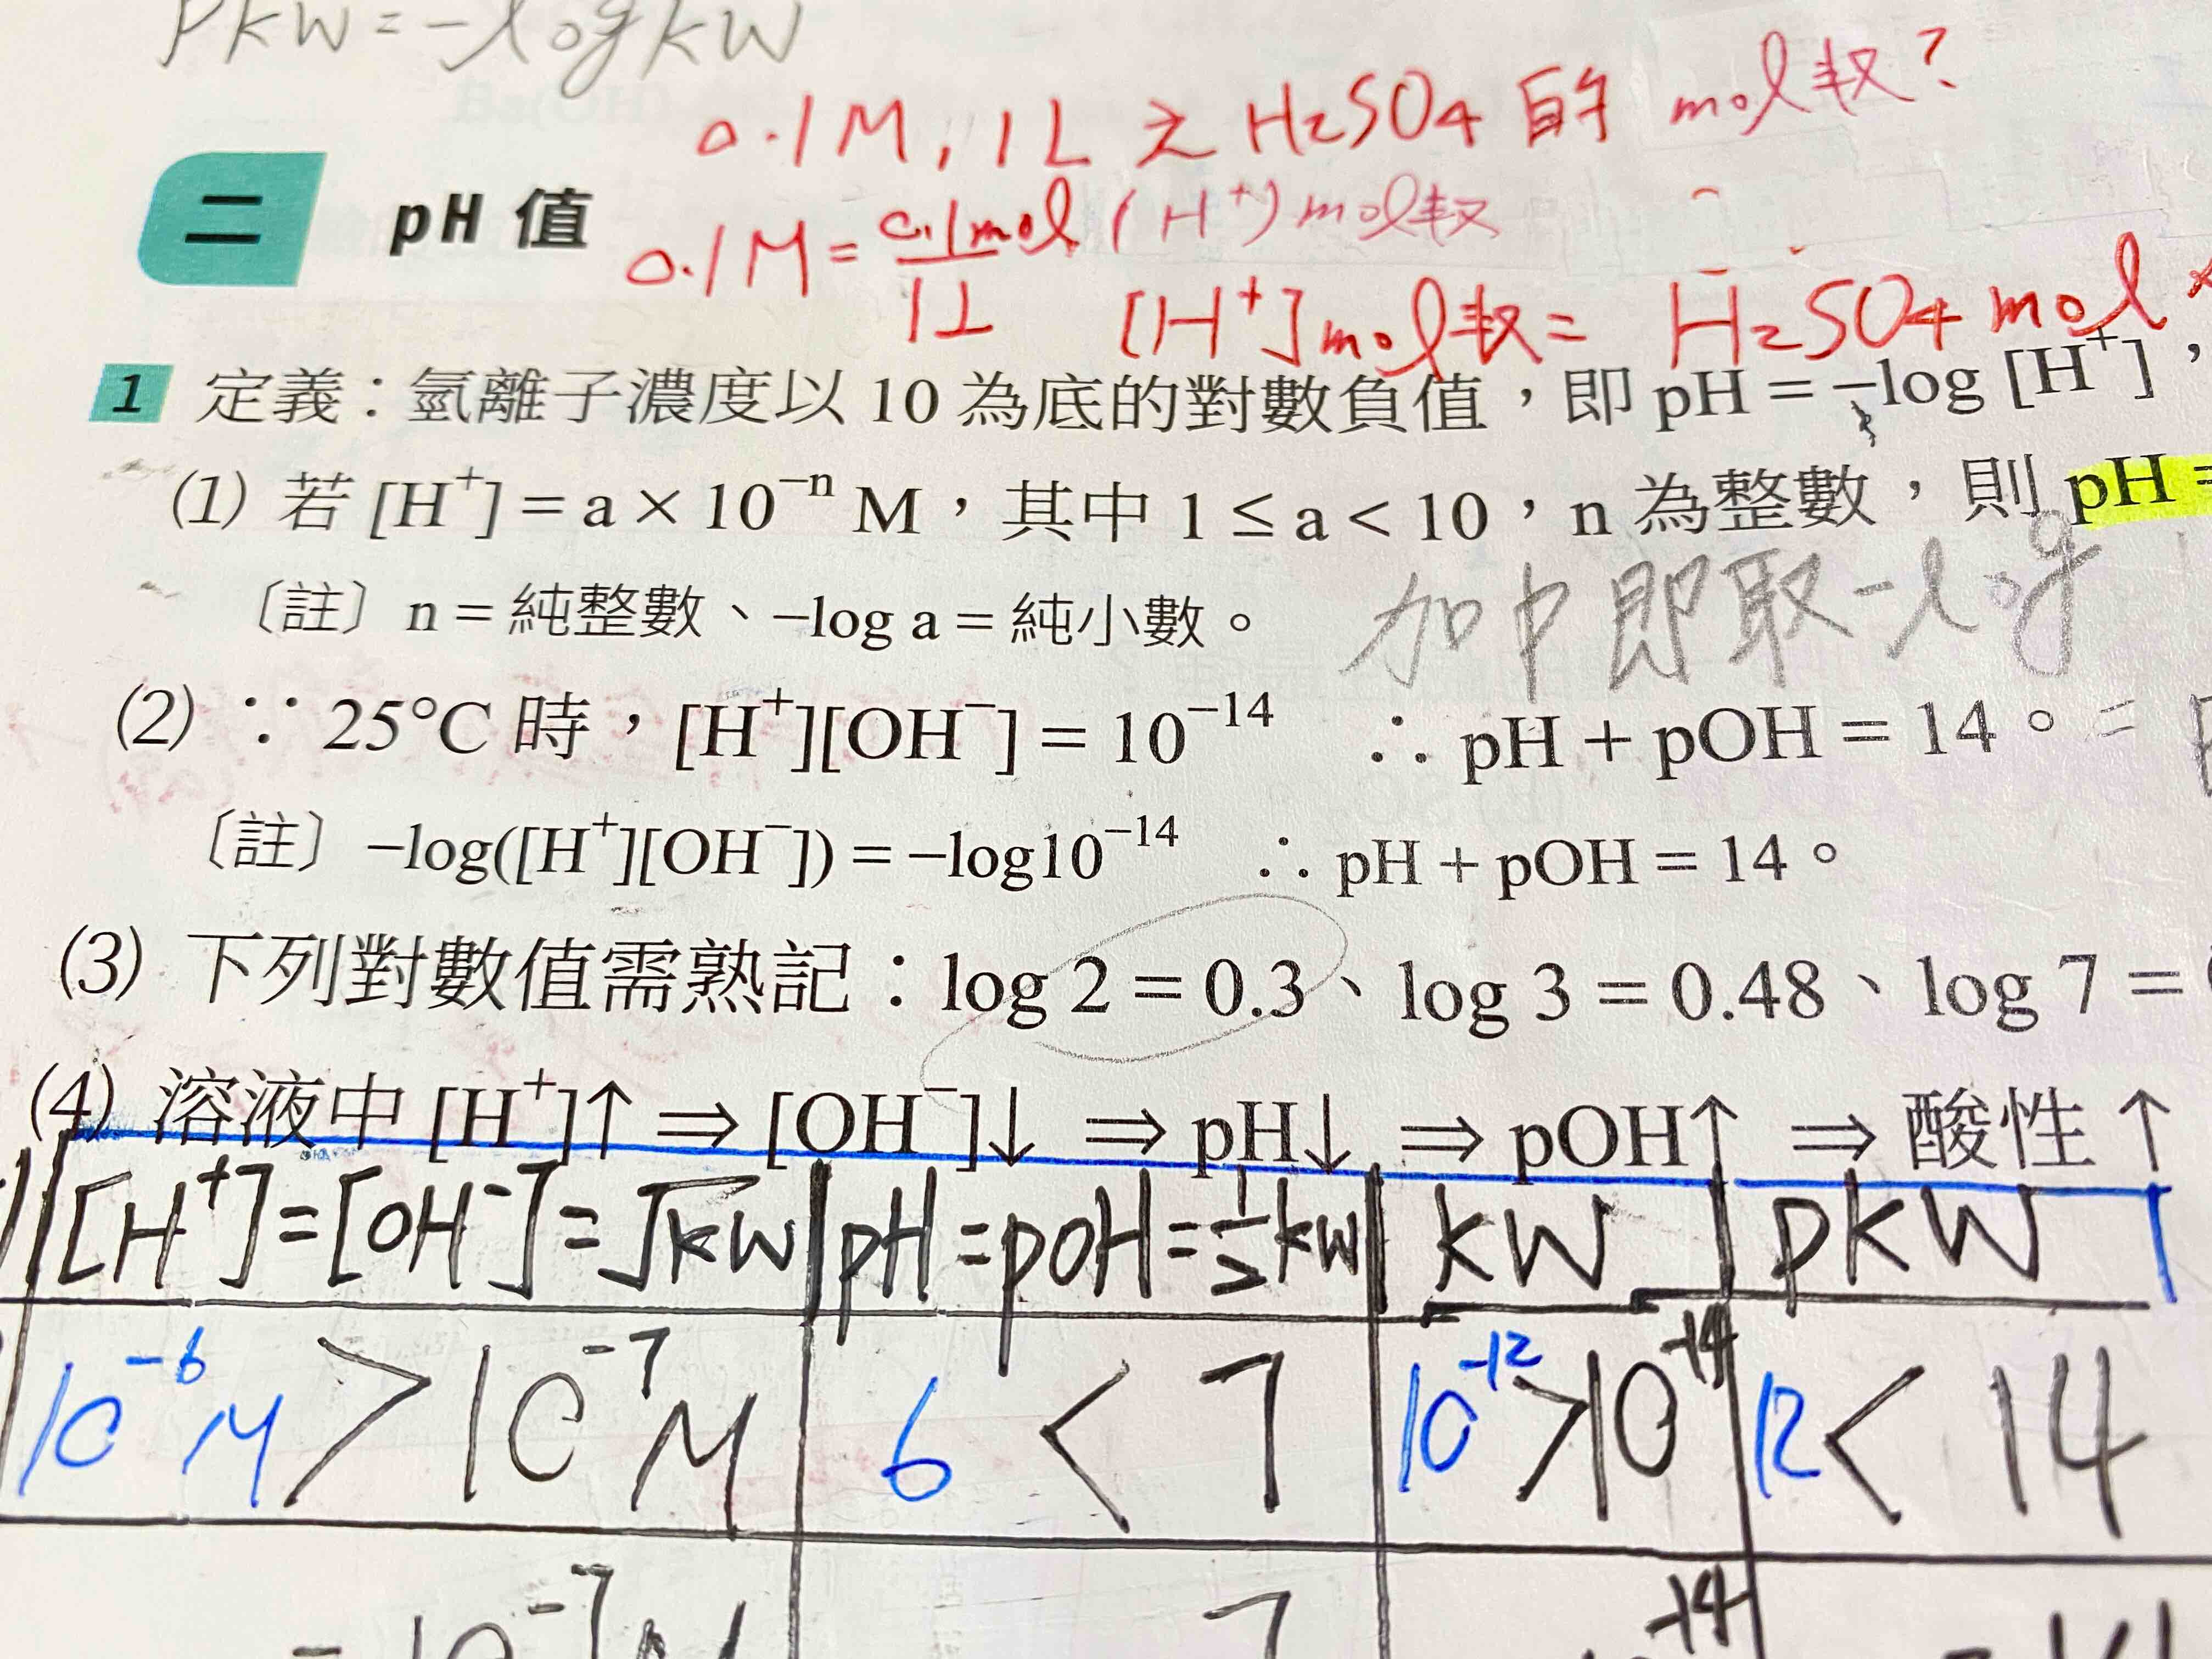 pkw=-logkw
0.1M, 1L 之 H2SO4 的 mol数?
二 pH 值
0.1M = 0.1mol/1L (H⁺) mol数
[H⁺] mol数 = H2SO4 mol
1 定義：氫離子濃度以 10 為底的對數負值，即 pH = −log [H⁺]，
(1) 若 [H⁺] = a × 10⁻ⁿ M，其中 1 ≤ a < 10，n 為整數，則 pH =
〔註〕n = 純整數、−log a = 純小數。
加中即取-log
(2) ∵ 25°C 時，[H⁺][OH⁻] = 10⁻¹⁴ ∴ pH + pOH = 14。=
〔註〕−log([H⁺][OH⁻]) = −log10⁻¹⁴ ∴ pH + pOH = 14。
(3) 下列對數值需熟記：log 2 = 0.3、log 3 = 0.48、log 7 =
(4) 溶液中 [H⁺]↑ ⇒ [OH⁻]↓ ⇒ pH↓ ⇒ pOH↑ ⇒ 酸性↑
[H⁺]=[OH⁻]=√kw pH=pOH=½kw kw pkw
10⁻⁶M > 10⁻⁷M 6 < 7 10⁻¹² > 10⁻¹⁴ 12 < 14
= 10⁻⁷M 7 10⁻¹⁴ = 14